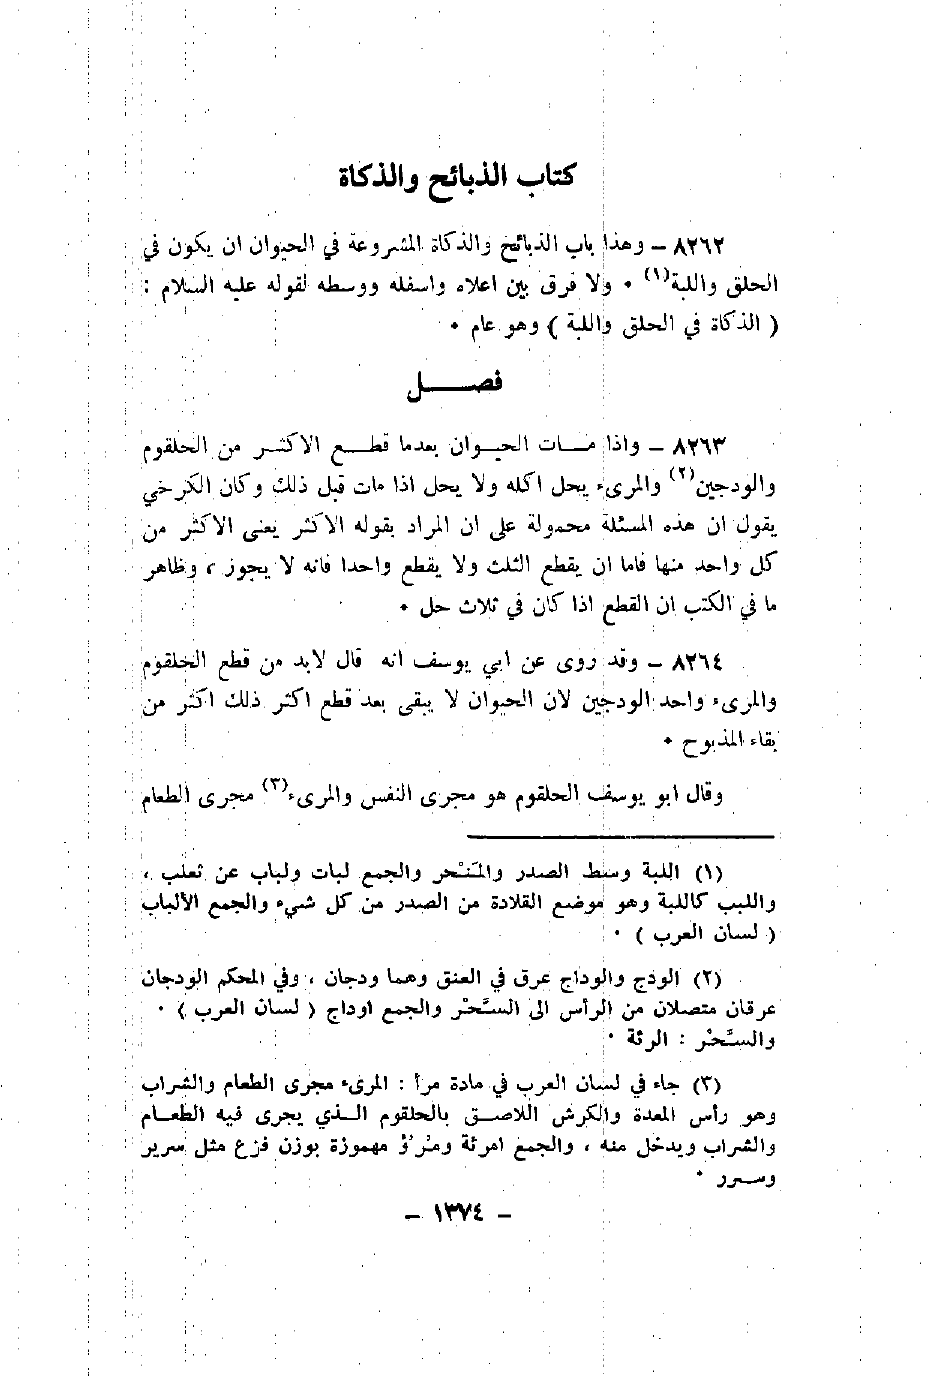 كتاب الذبائح والذكاة
٨٢٦٢ – وهذا باب الذبائح والذكاة المشروعة في الحيوان ان يكون في
الحلق واللبة(١) ٠ ولا فرق بين اعلاه واسفله ووسطه لقوله عليه السلام :
( الذكاة في الحلق واللبة ) وهو عام ٠
فصـــــل
٨٢٦٣ – واذا مـــات الحيـــوان بعدما قطـــع الاكثـــر من الحلقوم
والودجين(٢) والمرىء يحل اكله ولا يحل اذا مات قبل ذلك وكان الكرخي
يقول ان هذه المسئلة محمولة على ان المراد بقوله الاكثر يعنى الاكثر من
كل واحد منها فاما ان يقطع الثلث ولا يقطع واحدا فانه لا يجوز ، وظاهر
ما في الكتب ان القطع اذا كان في ثلاث حل ٠
٨٢٦٤ – وقد روى عن ابي يوسف انه قال لابد من قطع الحلقوم
والمرىء واحد الودجين لان الحيوان لا يبقى بعد قطع اكثر ذلك اكثر من
بقاء المذبوح ٠
وقال ابو يوسف الحلقوم هو مجرى النفس والمرىء(٣) مجرى الطعام
(١) اللبة وسط الصدر والمَنْحر والجمع لبات ولباب عن ثعلب ،
واللبب كاللبة وهو موضع القلادة من الصدر من كل شيء والجمع الألباب
( لسان العرب ) ٠
(٢) الودج والوداج عرق في العنق وهما ودجان ، وفي المحكم الودجان
عرقان متصلان من الرأس الى السَّحْر والجمع اوداج ( لسان العرب ) ٠
والسَّحْر : الرئة ٠
(٣) جاء في لسان العرب في مادة مرأ : المرىء مجرى الطعام والشراب
وهو رأس المعدة والكرش اللاصـق بالحلقوم الـذي يجرى فيه الطعـام
والشراب ويدخل منه ، والجمع امرئة ومُرُؤ مهموزة بوزن فزع مثل سرير
وسـرر ٠
– ١٣٧٤ –